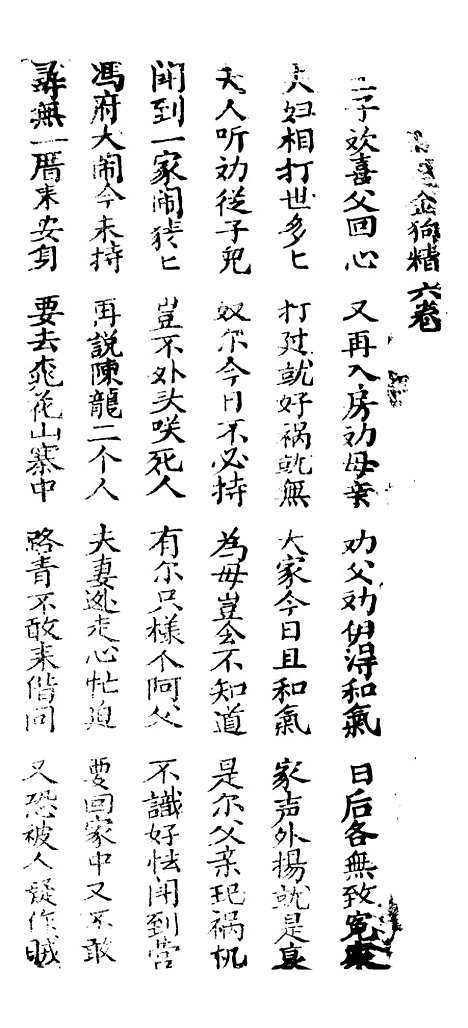 金狗精六卷
二子欢喜父回心 又再入房劝母亲 劝父劝伊得和氣 日后各無致冤家
夫妇相打世多匕 打过就好祸就無 大家今日且和氣 家声外揚就是哀
夫人听劝従子兒 奴尔今日不必持 為母豈会不知道 是尔父亲犯祸机
闹到一家闹猜匕 豈不外头咲死人 有尔只様个阿父 不識好怯闹到营
馮府大闹今未持 再説陳龍二个人 夫妻逃走心忙迫 要回家中又不敢
尋無一厝来安身 要去桃花山寨中 路青不敢来偕问 又恐被人疑作贼